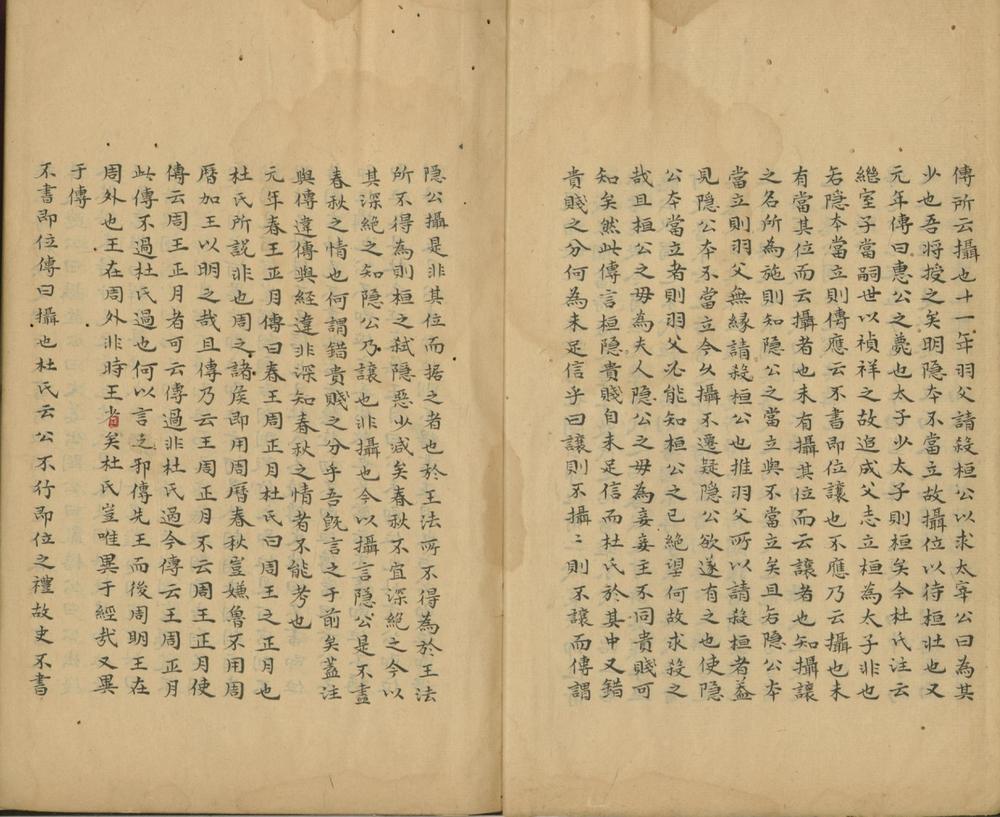 傳所云攝也十一年羽父請殺桓公以求太宰公曰為其
少也吾將授之矣明隐本不當立故攝位以待桓壯也又
元年傳曰惠公之薨也太子少太子則桓矣今杜氏注云
繼室子當嗣世以禎祥之故追成父志立桓為太子非也
若隐本當立則傳應云不書即位讓也不應乃云攝也未
有當其位而云攝者也未有攝其位而云讓者也知攝讓
之名所為施則知隐公之當立與不當立矣且若隐公本
當立則羽父無縁請殺桓公也推羽父所以請殺桓者葢
見隐公本不當立今攝不還疑隐公欲遂有之也使隐
公本當立者則羽父必能知桓公之已絶望何故求殺之
哉且桓公之母為夫人隐公之母為妾妾主不同貴賤可
知矣然此傳言桓隐貴賤自未足信而杜氏於其中又錯
貴賤之分何為未足信乎曰讓則不攝〻則不讓而傳謂
隐公攝是非其位而据之者也於王法所不得為於王法
所不得為則桓之弑隐惡少減矣春秋不宜深絶之今以
其深絶之知隐公乃讓也非攝也今以攝言隐公是不盡
春秋之情也何謂錯貴賤之分乎吾既言之于前矣葢注
與傳違傳與經違非深知春秋之情者不能考也
元年春王正月傳曰春王周正月杜氏曰周王之正月也
杜氏所說非也周之諸侯即用周曆春秋豈嫌魯不用周
曆加王以明之哉且傳乃云王周正月不云周王正月使
傳云周王正月者可云傳過非杜氏過今傳云王周正月
此傳不過杜氏過也何以言之邪傳先王而後周明王在
周外也王在周外非時王者矣杜氏豈唯異于經哉又異
于傳
不書即位傳曰攝也杜氏云公不行即位之禮故史不書